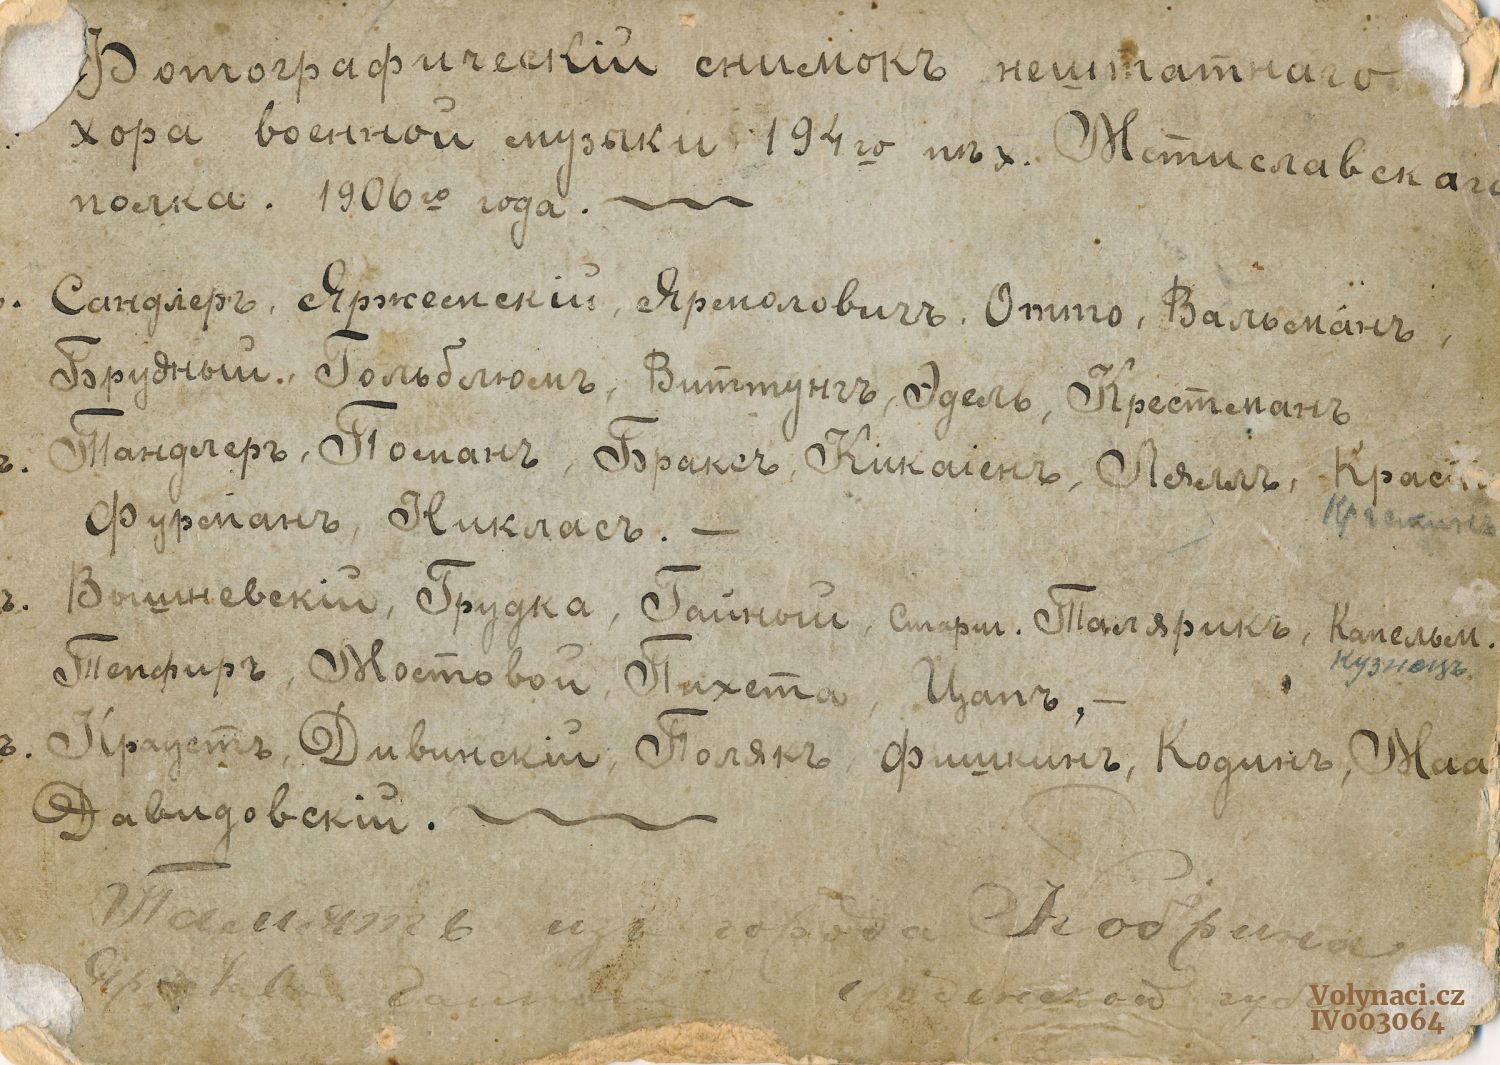 Фотографическій снимокъ нештатнаго
хора военной музыки 194го пѣх. Мстиславскаго
полка. 1906го года.
Сандлеръ, Яржемскій, Ярмоловичъ, Отто, Вальманъ,
Брудный, Гольблюмъ, Виттунгъ, Эдель, Крестманъ
Тандлеръ, Поманъ, Браксъ, Кикаіенъ, Лялль,
Фурманъ, Никласъ. —
Вышневскій, Грудка, Гайный, Старш. Талярикъ, Капельм.
Кузнецъ.
Тепфиръ, Мостовой, Пихета, Цапъ, —
Краустъ, Дивинскій, Полякъ, Фишкинъ, Кодинъ,
Давидовскій.
Память изъ города Кобрина
Volynaci.cz
IV003064